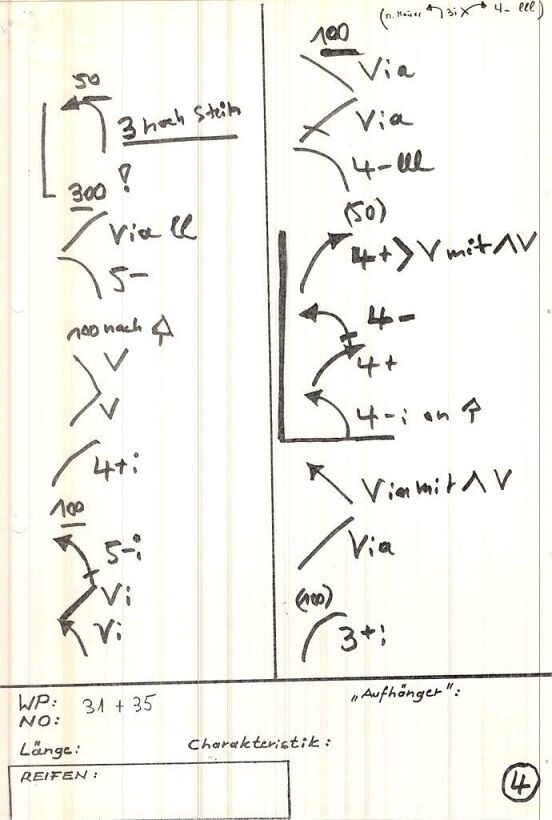 (n. Mauer 3i 4- lll)
50
3 nach Stein
!
300
Via ll
5-
100 nach
V
V
4+i
100
5-i
Vi
Vi
100
Via
Via
4-lll
(50)
4+ > V mit ΛV
4-
4+
4-i an
Via mit Λ V
Via
(100)
3+i
WP: 31 + 35
NO:
Länge:
REIFEN:
Charakteristik:
„Aufhänger":
4